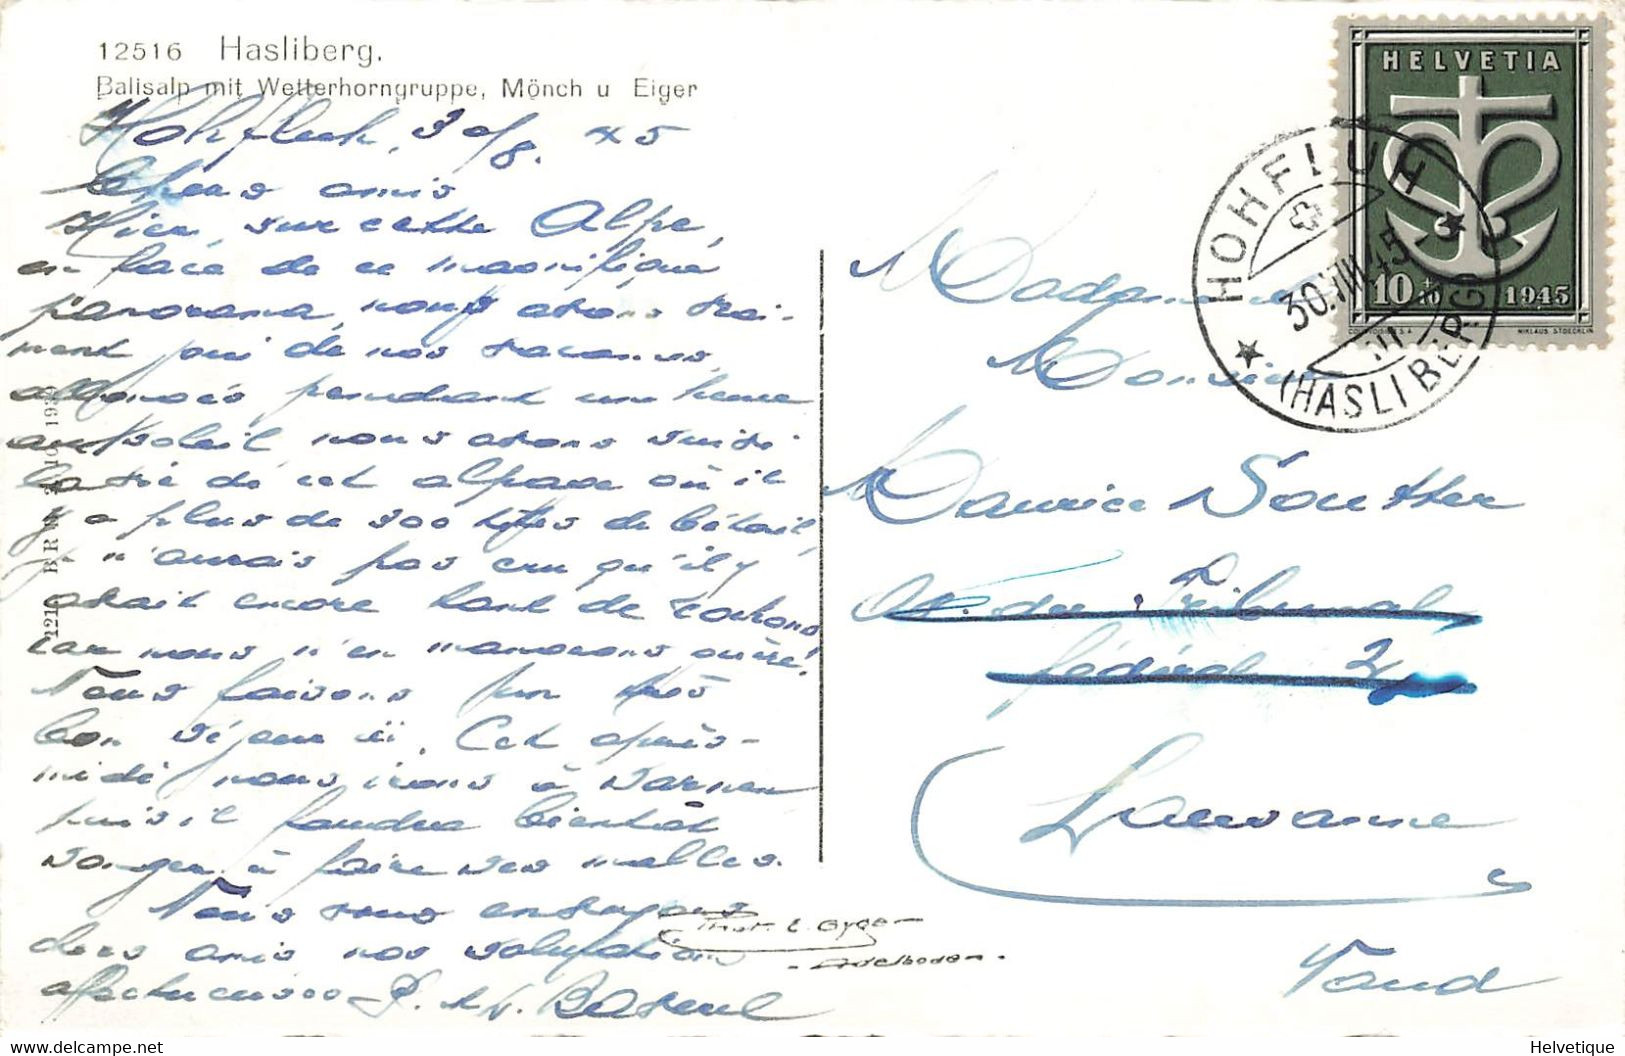 12516 Hasliberg.
Balisalp mit Wetterhorngruppe, Mönch u Eiger
Hohfluh, 30/8. 45
Chers amis
Hier, sur cette Alpe,
en face de ce magnifique
panorama, nous avons
de nos vacances,
allongés pendant une heure
au soleil nous avons
de cet alpage où il
y a plus de 300 têtes de bétail,
je n'aurais pas cru qu'il y
avait encore tant de
car nous n'en mangeons guère.
Nous faisons un très
bon séjour ici. Cet après-
midi nous irons à Sarnen
puis il faudra bientôt
songer à faire ses malles.
Nous vous envoyons
chers amis nos salutations
affectueuses
Phot. E. Gyger
- Adelboden.
HELVETIA
10+10 1945
COURVOISIER S.A. NIKLAUS STOECKLIN
HOHFLUH
30.VIII.45
(HASLIBERG)
Madame et
Monsieur
Maurice Soutter
Av. du Tribunal
fédéral 2
Lausanne
Vaud
delcampe.net
Helvetique